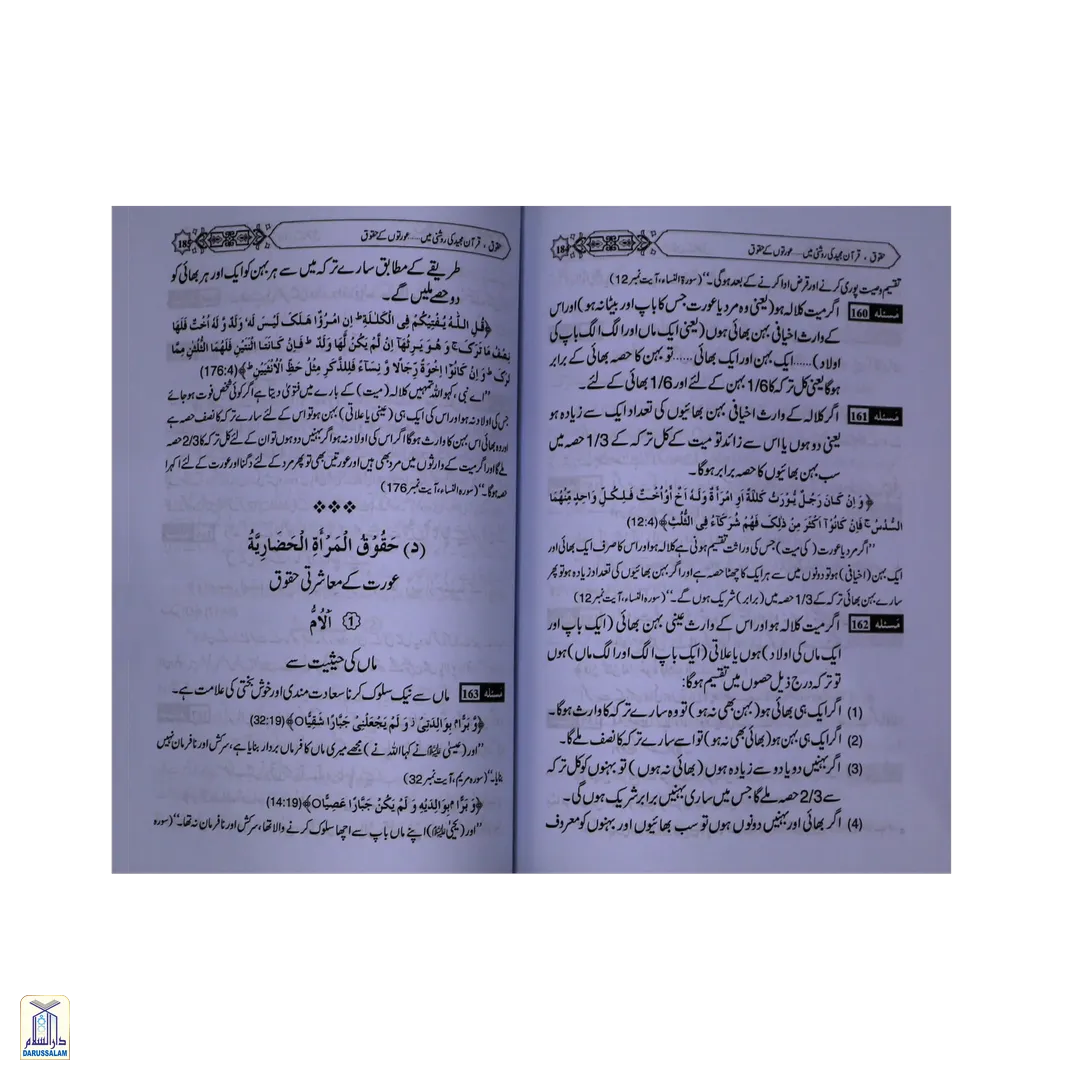 184
حقوق ، قرآن مجید کی روشنی میں ..... عورتوں کے حقوق
تقسیم وصیت پوری کرنے اور قرض ادا کرنے کے بعد ہوگی۔‘‘ (سورۃ النساء، آیت نمبر 12)
مسئلہ 160 اگر میت کلالہ ہو (یعنی وہ مرد یا عورت جس کا باپ اور بیٹا نہ ہو) اور اس
کے وارث اخیافی بہن بھائی ہوں (یعنی ایک ماں اور الگ الگ باپ کی
اولاد) ...... ایک بہن اور ایک بھائی ...... تو بہن کا حصہ بھائی کے برابر
ہوگا یعنی کل ترکہ کا 1/6 بہن کے لئے اور 1/6 بھائی کے لئے۔
مسئلہ 161 اگر کلالہ کے وارث اخیافی بہن بھائیوں کی تعداد ایک سے زیادہ ہو
یعنی دو ہوں یا اس سے زائد تو میت کے کل ترکہ کے 1/3 حصہ میں
سب بہن بھائیوں کا حصہ برابر ہوگا۔
﴿ وَ اِنْ كَانَ رَجُلٌ يُّوْرَثُ كَلٰلَةً اَوِ امْرَاَةٌ وَّلَهٗ اَخٌ اَوْ اُخْتٌ فَلِكُلِّ وَاحِدٍ مِّنْهُمَا
السُّدُسُ ۚ فَاِنْ كَانُوْٓا اَكْثَرَ مِنْ ذٰلِكَ فَهُمْ شُرَكَآءُ فِى الثُّلُثِ﴾ (12:4)
’’اگر مرد یا عورت (کی میت) جس کی وراثت تقسیم ہونی ہے کلالہ ہو اور اس کا صرف ایک بھائی اور
ایک بہن (اخیافی) ہو تو دونوں میں سے ہر ایک کا چھٹا حصہ ہے اور اگر بہن بھائیوں کی تعداد زیادہ ہو تو پھر
سارے بہن بھائی ترکہ کے 1/3 حصہ میں (برابر) شریک ہوں گے۔‘‘ (سورہ النساء، آیت نمبر 12)
مسئلہ 162 اگر میت کلالہ ہو اور اس کے وارث عینی بہن بھائی (ایک باپ اور
ایک ماں کی اولاد) ہوں یا علاتی (ایک باپ الگ اور الگ ماں) ہوں
تو ترکہ درج ذیل حصوں میں تقسیم ہوگا:
(1) اگر ایک ہی بھائی ہو (بہن بھی نہ ہو) تو وہ سارے ترکہ کا وارث ہوگا۔
(2) اگر ایک ہی بہن ہو (بھائی بھی نہ ہو) تو اسے سارے ترکہ کا نصف ملے گا۔
(3) اگر بہنیں دو یا دو سے زیادہ ہوں (بھائی نہ ہوں) تو بہنوں کو کل ترکہ
سے 2/3 حصہ ملے گا جس میں ساری بہنیں برابر شریک ہوں گی۔
(4) اگر بھائی اور بہنیں دونوں ہوں تو سب بھائیوں اور بہنوں کو معروف
185
حقوق ، قرآن مجید کی روشنی میں ..... عورتوں کے حقوق
طریقے کے مطابق سارے ترکہ میں سے ہر بہن کو ایک اور ہر بھائی کو
دو حصے ملیں گے۔
﴿قُلِ اللّٰهُ يُفْتِيْكُمْ فِى الْكَلٰلَةِ ؕ اِنِ امْرُؤٌا هَلَكَ لَيْسَ لَهٗ وَلَدٌ وَّ لَهٗٓ اُخْتٌ فَلَهَا
نِصْفُ مَا تَرَكَ ۚ وَ هُوَ يَرِثُهَآ اِنْ لَّمْ يَكُنْ لَّهَا وَلَدٌ ؕ فَاِنْ كَانَتَا اثْنَتَيْنِ فَلَهُمَا الثُّلُثٰنِ مِمَّا
تَرَكَ ؕ وَ اِنْ كَانُوْٓا اِخْوَةً رِّجَالًا وَّ نِسَآءً فَلِلذَّكَرِ مِثْلُ حَظِّ الْاُنْثَيَيْنِ ؕ﴾ (176:4)
’’اے نبی، کہو اللہ تمہیں کلالہ (میت) کے بارے میں فتویٰ دیتا ہے اگر کوئی شخص فوت ہو جائے
جس کی اولاد نہ ہو اور اس کی ایک ہی (عینی یا علاتی) بہن ہو تو اس کے لئے سارے ترکہ کا نصف حصہ ہے
اور وہ بھائی اس بہن کا وارث ہوگا اگر اس کی اولاد نہ ہو اگر بہنیں دو ہوں تو ان کے لئے کل ترکہ کا 2/3 حصہ
ملے گا اور اگر میت کے وارثوں میں مرد بھی ہیں اور عورتیں بھی تو پھر مرد کے لئے دگنا اور عورت کے لئے اکہرا
حصہ ہوگا۔‘‘ (سورہ النساء، آیت نمبر 176)
(د) حَقُوْقُ الْمَرْأَةِ الْحَضَارِيَّةُ
عورت کے معاشرتی حقوق
1 اَلْاُمُّ
ماں کی حیثیت سے
مسئلہ 163 ماں سے نیک سلوک کرنا سعادت مندی اور خوش بختی کی علامت ہے۔
﴿وَّ بَرًّا ۢ بِوَالِدَتِىْ ۡ وَ لَمْ يَجْعَلْنِىْ جَبَّارًا شَقِيًّا○﴾ (32:19)
’’اور (عیسیٰ علیہ السلام نے کہا اللہ نے) مجھے میری ماں کا فرماں بردار بنایا ہے، سرکش اور نافرمان نہیں
بنایا۔‘‘ (سورہ مریم، آیت نمبر 32)
﴿وَّ بَرًّا ۢ بِوَالِدَيْهِ وَ لَمْ يَكُنْ جَبَّارًا عَصِيًّا○﴾ (14:19)
’’اور (یحییٰ علیہ السلام) اپنے ماں باپ سے اچھا سلوک کرنے والا تھا، سرکش اور نافرمان نہ تھا۔‘‘ (سورہ
دار السلام
DARUSSALAM